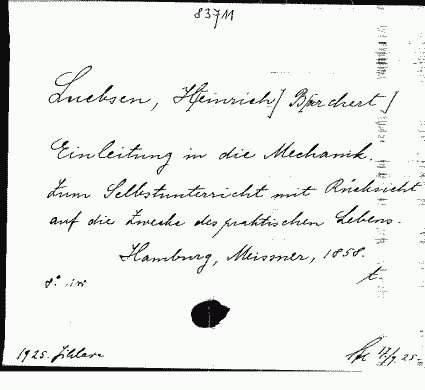 83711
Luebsen, H[einrich] B[orchert]
Einleitung in die Mechanik.
Zum Selbstunterricht mit Rücksicht
auf die Zwecke des praktischen Lebens.
Hamburg, Meissner, 1858.
8°
t.
1925. 17/9 25.